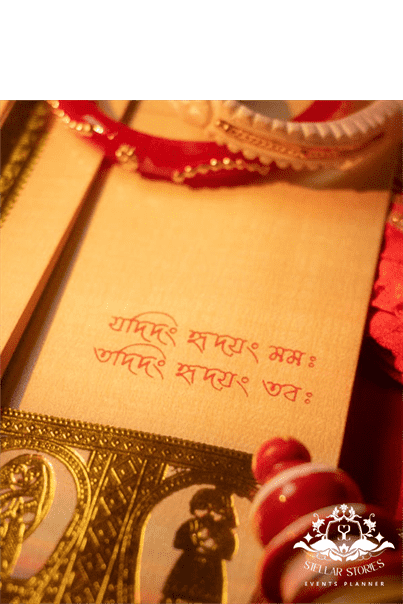 যদিদিং হৃদয়ং মমঃ
তাদিদিং হৃদয়ং তবঃ
STELLAR STORIES
EVENTS PLANNER